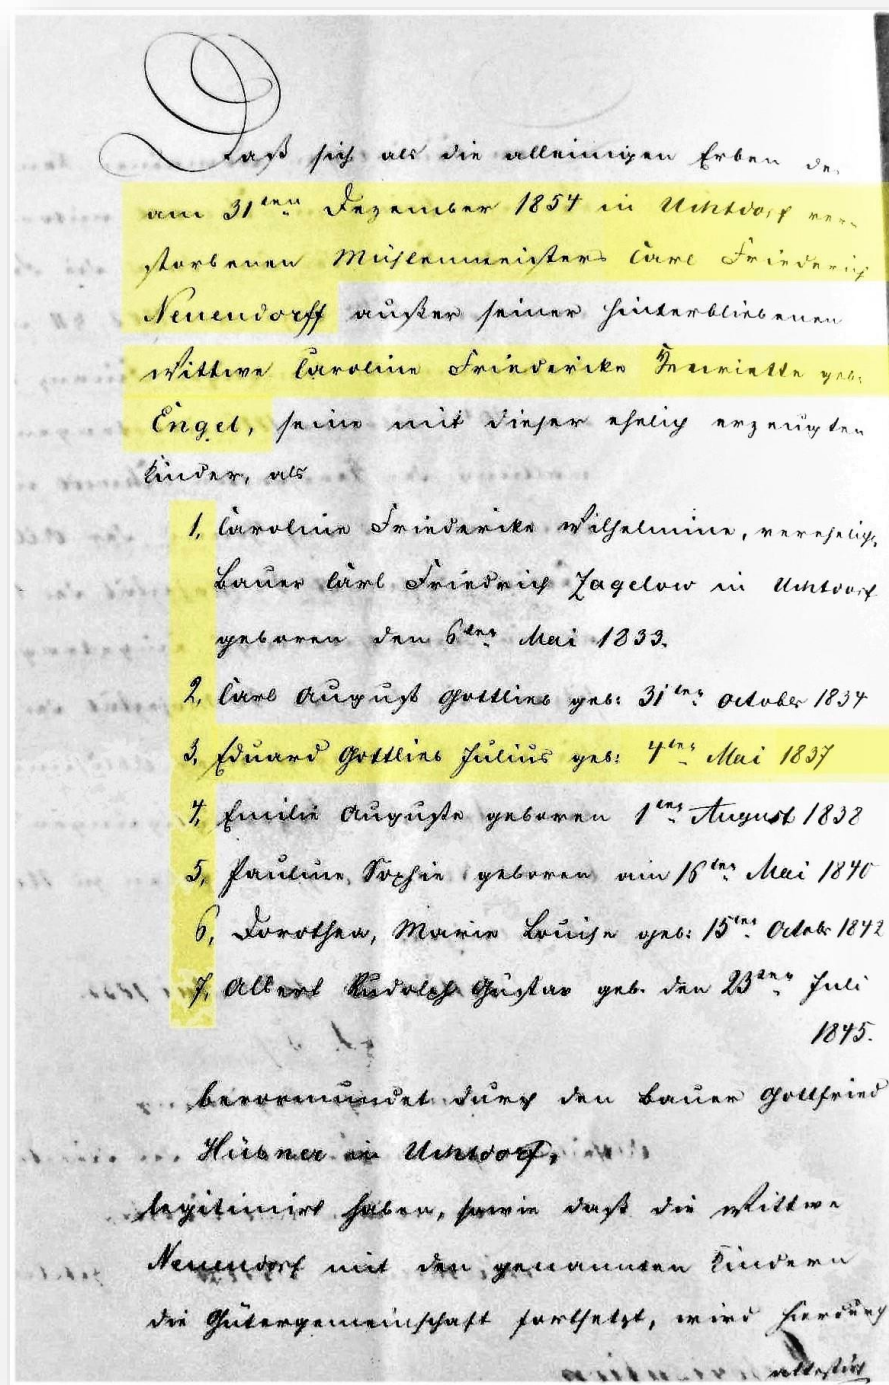 Daß sich als die alleinigen Erben de
am 31ten Dezember 1854 in Uchtdorf ver-
storbenen Mühlenmeisters Carl Friederich
Neuendorff außer seiner hinterbliebenen
Wittwe Caroline Friederike Henriette geb:
Engel, seine mit dieser ehelich erzeugten
Kinder, als
1, Caroline Friederike Wilhelmine, verehelich.
Bauer Carl Friedrich Zagelow in Uchtdorf
geboren den 6ten Mai 1833.
2, Carl August Gottlieb geb: 31ten October 1834
3, Eduard Gottlieb Julius geb: 4ten Mai 1837
4, Emilie Auguste geboren 1ten August 1838
5, Pauline Sophie geboren am 16ten Mai 1840
6, Dorothea, Marie Louise geb: 15ten Octobr 1842
7, Albert Rudolph Gustav geb. den 23ten Juli
1845.
bevormundet durch den Bauer Gottfried
Hübner in Uchtdorf,
legitimirt haben, sowie daß die Wittwe
Neuendorf mit den genannten Kindern
die Gütergemeinschaft fortsetzt, wird hierdurch
attestirt